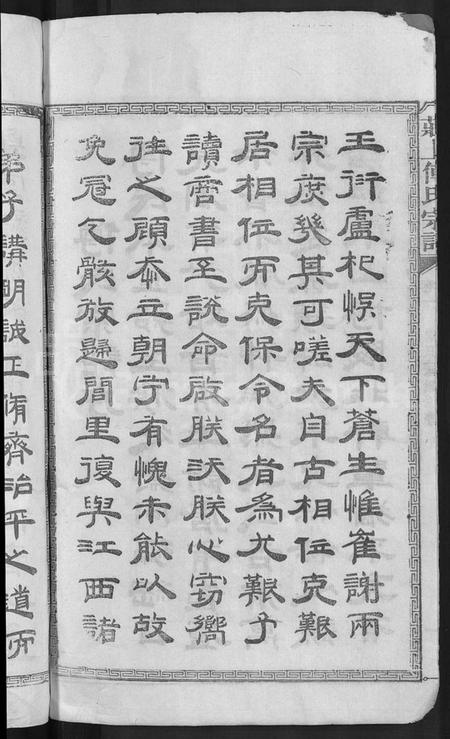 王衍盧杞悮天下蒼生惟崔謝兩
宗庶幾其可嗟夫自古相位克艱
居相位而克保令名者爲尤艱予
讀商書至說命啟朕沃朕心窃嚮
往之顧忝立朝宁有愧未能以故
免冠乞骸放歸閭里復與江西諸
弟子講明誠正脩齊治平之道而